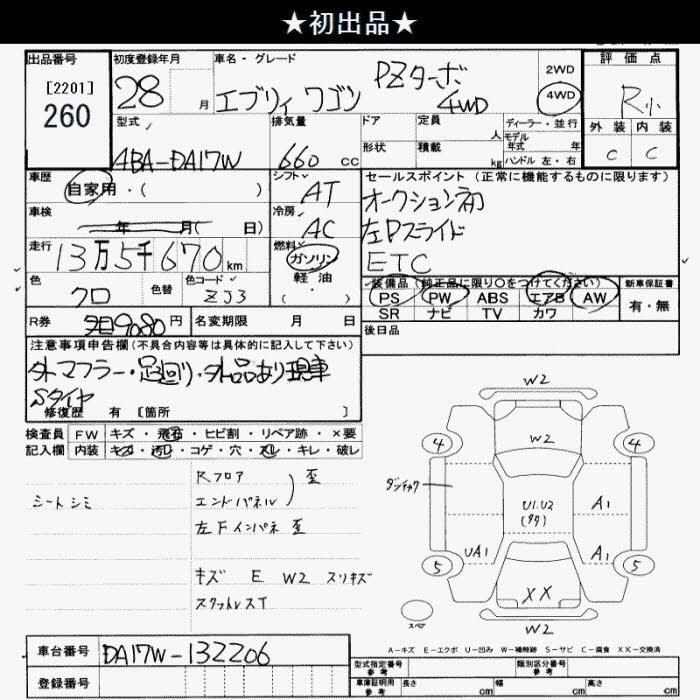 ★初出品★
出品番号
[2201]
260
初度登録年月
28 月
車名・グレード
エブリィ ワゴン PZターボ 4WD
2WD
4WD
評価点
R小
外装 内装
C C
型式
ABA-DA17W
排気量
660 CC
ドア
形状
定員 人
積載 kg
ディーラー・並行
モデル年式 年
ハンドル 左・右
車歴
自家用・( )
シフト
AT
セールスポイント(正常に機能するものに限ります)
オークション初
左Pスライド
ETC
車検
年 月( 日)
冷房
AC
走行
13万5千670km
燃料
ガソリン
軽油
( )
色
クロ
色替
色コード
ZJ3
装備品(純正品に限り〇をつけてください)
PS PW ABS エアB AW
SR ナビ TV カワ
新車保証書
有・無
R券
9080円
名変期限 月 日
後日品
注意事項申告欄(不具合内容等は具体的に記入して下さい)
外マフラー・足回り・外品あり現車
Sタイヤ
修復歴 有 [箇所 ]
検査員 FW キズ・飛石・ヒビ割・リペア跡・×要
記入欄 内装 キズ・汚レ・コゲ・穴・スレ・キレ・破レ
シートシミ
Rフロア
エンドパネル
) 歪
左Fインパネ 歪
キズ E W2 スリキズ
スクットレスT
W2
W2
4
4
ダンチャク
U1.U2
(タタ)
A1
UA1
A1
5
5
XX
スペア
W2
A-キズ E-エクボ U-凹み W-補修跡 S-サビ C-腐食 XX-交換済
車台番号
DA17W-132206
登録番号
型式指定番号
参考
類別区分番号
参考
車庫証明用
参考
長さ cm
幅 cm
高さ cm